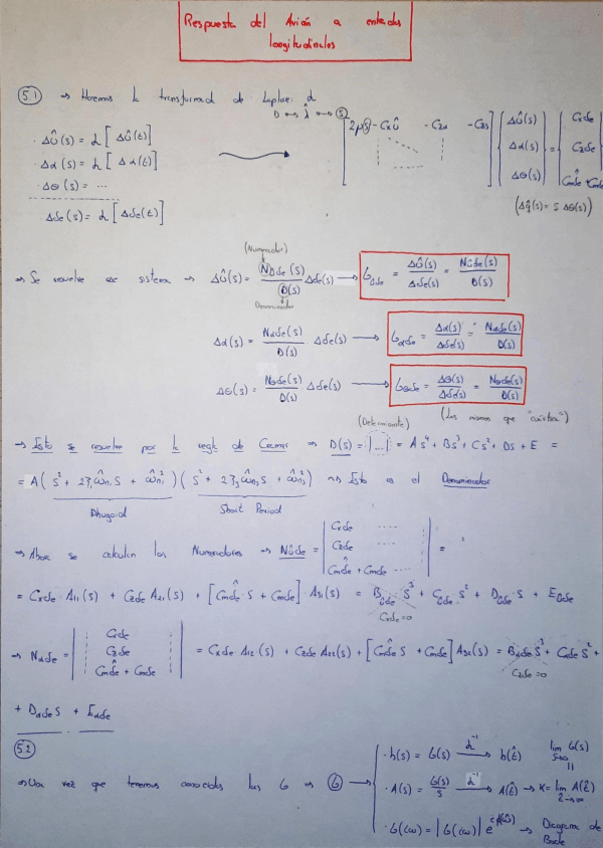 Respuesta del Avión a entradas
longitudinales
5.1 → Hacemos la transformada de Laplace: L
D ↔ λ̂ ↔ S
· Δû(s) = L [ Δû(t̂) ]
· Δα(s) = L [ Δα(t̂) ]
· Δθ(s) = ...
Δδe(s) = L [ Δδe(t̂) ]
[ 2μs - Cxû   - Czα   - Czs ] { Δû(s) Δα(s) Δθ(s) } = { Cxδe Czδe Cmδ̂e + Cmδe
(Δq̂(s) = s Δθ(s))
(Numerador)
→ Se resuelve ese sistema → Δû(s) = Nûδe(s) / D(s) Δδe(s) → Gûδe = Δû(s) / Δδe(s) = Nûδe(s) / D(s)
Denominador
Δα(s) = Nαδe(s) / D(s) Δδe(s) → Gαδe = Δα(s) / Δδe(s) = Nαδe(s) / D(s)
Δθ(s) = Nθδe(s) / D(s) Δδe(s) → Gθδe = Δθ(s) / Δδe(s) = Nθδe(s) / D(s)
(Determinante) (Las mismas que "cuártica")
→ Esto se resuelve por la regla de Cramer → D(s) = |...| = As⁴ + Bs³ + Cs² + Ds + E =
= A( s² + 2ζ₁ω̂n₁s + ω̂n₁² )( s² + 2ζ₃ω̂n₃s + ω̂n₃² ) → Esto es el Denominador
Phugoid   Short Period
→ Ahora se calculan los Numeradores → Nûδe = | Cxδe .... Czδe .... Cmδ̂e + Cmδe .... | =
= Cxδe · A₁₁(s) + Czδe A₂₁(s) + [ Cmδ̂e · s + Cmδe ] · A₃₁(s) = Bûδe · s³ + Cûδe · s² + Dûδe · s + Eûδe
Cxδe = 0
→ Nαδe = | Cxδe Czδe Cmδ̂e + Cmδe | = Cxδe A₁₂(s) + Czδe A₂₂(s) + [ Cmδ̂e s + Cmδe ] A₃₂(s) = Bαδe s³ + Cαδe s² +
Czδe = 0
+ Dαδe s + Eαδe
5.2
→ Una vez que tenemos conocidas las G → G →
· h(s) = G(s) L⁻¹ → h(t̂)   lim G(s)
· A(s) = G(s)/s L⁻¹ → A(t̂) → K = lim A(t̂)
· G(iω) = |G(iω)| → Diagrama de
Bode